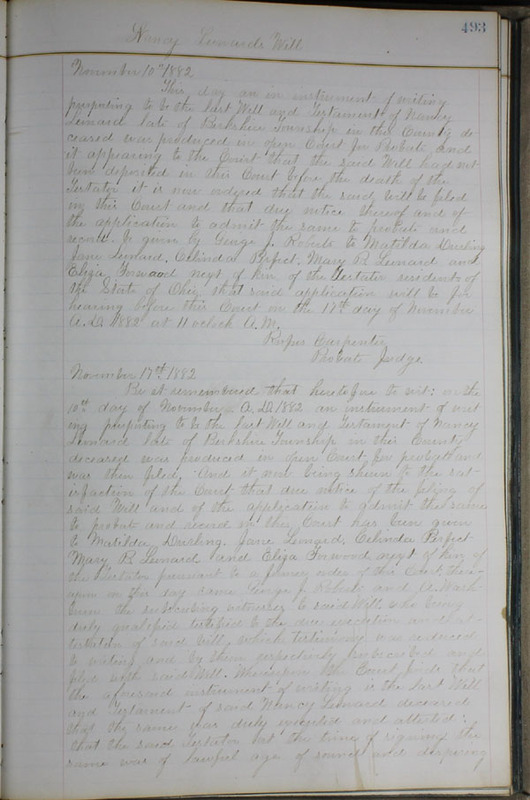 493
Nancy Lenards Will
November 10th 1882
This day an in instrument of writing
purporting to be the last Will and Testament of Nancy
Lenard late of Berkshire Township in this County de
ceased was produced in open Court for Probate and
it appearing to the Court that the said Will had not
been deposited in this Court before the death of the
Testator it is now ordered that the said will be filed
in this Court and that due notice thereof and of
the application to admit the same to probate and
record be given by George J. Roberts to Matilda Durling
Jane Lenard, Celinda Perfect, Mary R. Lenard and
Eliza Forwood next of kin of the Testator residents of
the State of Ohio, that said application will be for
hearing before this Court on the 17th day of November
A.D. 1882 at 11 oclock A.M.
Rufus Carpenter
Probate Judge
November 17th 1882
Be it remembered that heretofore to wit: on the
10th day of November A.D. 1882 an instrument of writ
ing purporting to be the last Will and Testament of Nancy
Lenard late of Berkshire Township in this County
deceased was produced in open Court for probate and
was then filed. And it now being shown to the sat-
isfaction of the Court that due notice of the filing of
said Will and of the application to admit the same
to probate and record in this Court has been given
to Matilda Durling, Jane Lenard, Celinda Perfect
Mary R. Lenard and Eliza Forwood next of kin of
the Testator pursuant to a former order of this Court there-
upon on this day came George J. Roberts and A. Wash
burn the subscribing witnesses to said Will who being
duly qualified testified to the due execution and at-
testation of said Will, which testimony was reduced
to writing and by them respectively subscribed and
filed with said Will. Whereupon the Court finds that
the aforesaid instrument of writing is the last Will
and Testament of said Nancy Lenard deceased
that the same was duly executed and attested;
that the said Testator at the time of signing the
same was of lawful age of sound and disposing